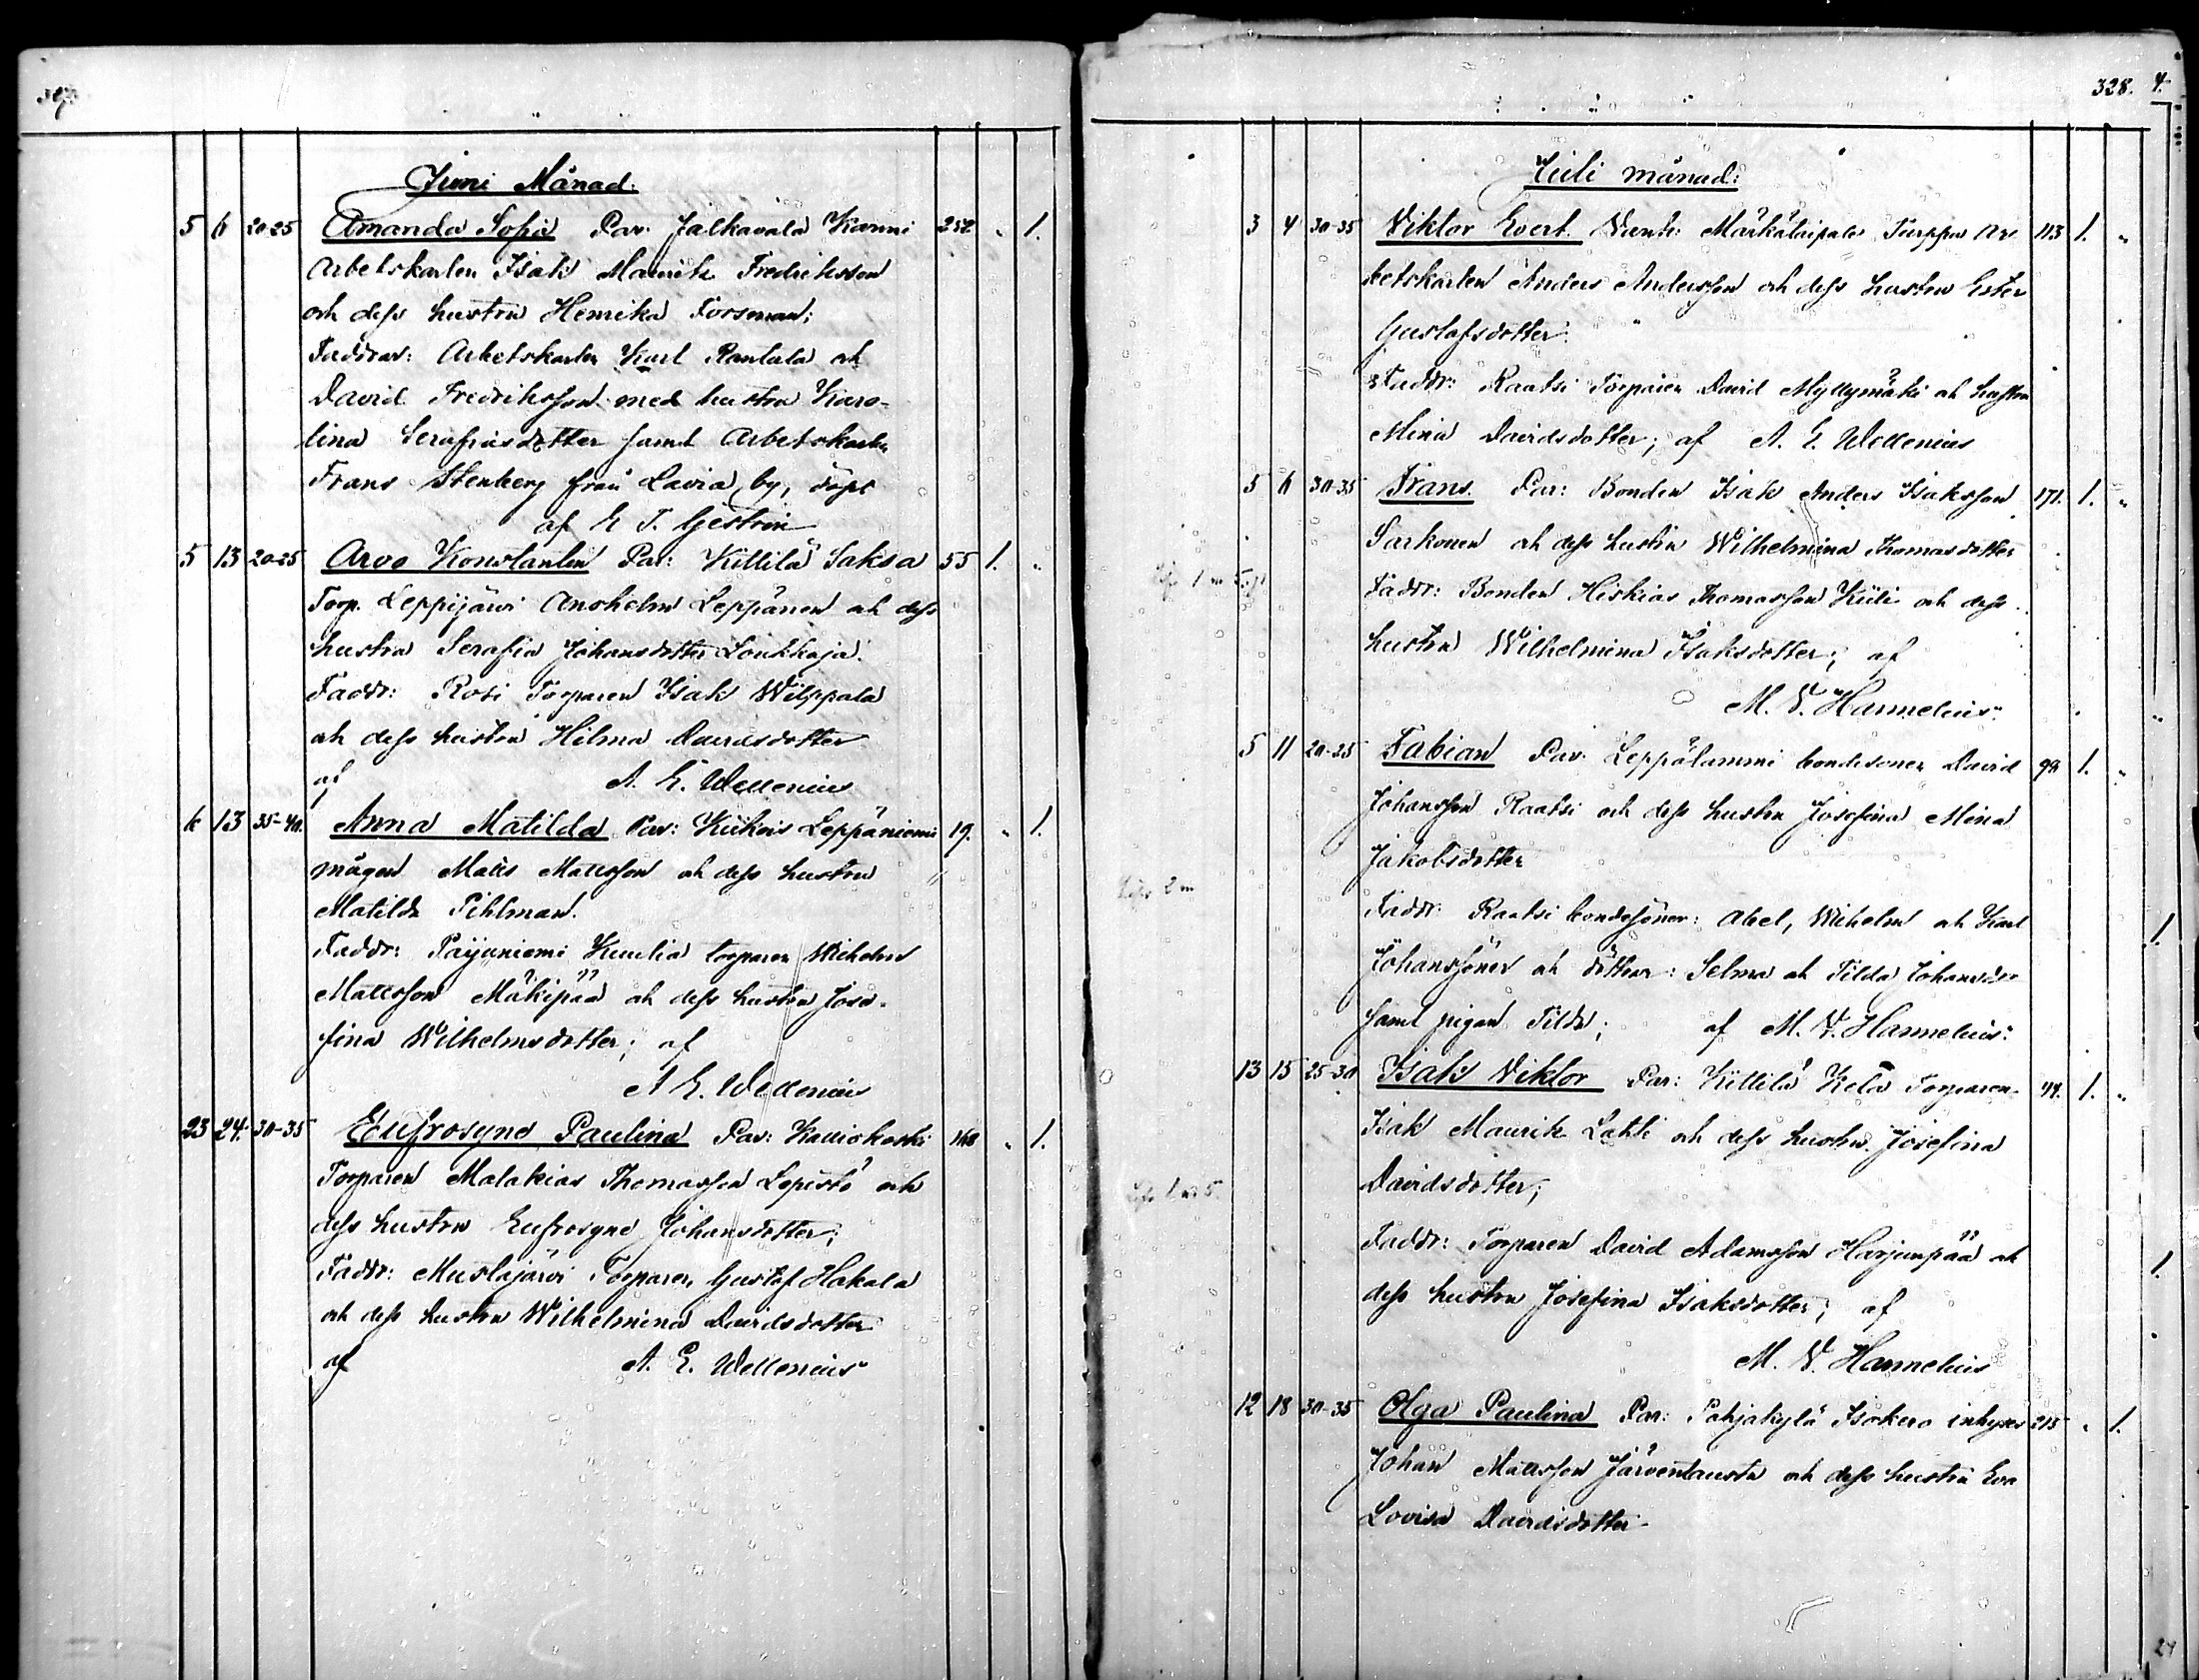 328. 4.
Juni Månad.
5 6 20-25 Amanda Sofia Par. Jalkavala Kanni 252 " 1.
Arbetskarlen Isak Maurits Fredriksson
och dess hustru Henrika Forsman;
Faddrar: Arbetskarlen Karl Rantala och
David Fredriksson med hustru Karo-
lina Serafiasdotter samt Arbetskarlen
Frans Stenberg från Lavia by, döpt
af E T. Gestrin
5 13 20-25 Arvo Konstantin Par: Kittilä Saksa 55 1. "
Torp. Leppijärvi Anshelm Leppänen och dess
hustru Serafia Johansdotter Loukkaja.
Faddr: Rosi Torparen Isak Wilppala
och dess hustru Hilma Davidsdotter
af A. E. Wellenius
6 13 35-40. Anna Matilda Par: Kukois Leppäniemi 19. " 1.
mågen Matts Mattsson och dess hustru
Matilda Pihlman.
Faddr: Paijuniemi torparen Wilhelm
Mattsson Mäkipää och dess hustru Jose-
fina Wilhelmsdotter; af
A E. Wellenius
23 24. 30-35 Eufrosyne Paulina Par: Kalliokoski 168 " 1.
Torparen Malakias Thomasson Lepistö och
dess hustru Eufrosyne Johansdotter;
Faddr: Mustajärvi Torparen Gustaf Hakala
och dess hustru Wilhelmina Davidsdotter
af A. E. Wellenius
Juli månad:
3 4 30-35 Viktor Evert. Märkälaipale Turppa Ar- 113 1. "
betskarlen Anders Andersson och dess hustru Ester
Gustafsdotter.
Faddr: Raatsi Torparen David Myllymäki och hustru
Mina Davidsdotter; af A. E. Wellenius
5 6 30-35 Frans. Par: Bonden Isak Anders Isaksson 171. 1. "
Sarkonen och dess hustru Wilhelmina Thomasdotter
Faddr: Bonden Hiskias Thomasson och dess
hustru Wilhelmina Isaksdotter; af
M. V. Hannelius.
5 11 20-25 Fabian Par. Leppälammi bondesonen David 98 1. "
Johansson Raatsi och dess hustru Josefina Mina
Jakobsdotter
Faddr: Raatsi bondesöner: Abel, Wilhelm och Karl
Johanssöner och döttrar: Selma och Tilda Johansdr
samt pigan Tilda; af M. V. Hannelius.
13 15 25-30 Isak Viktor Par: Kittilä Kela Torparen 44. 1. "
Isak Maurits Lahti och dess hustru Josefina
Davidsdotter;
Faddr: Torparen David Adamsson Harjunpää och
dess hustru Josefina Isaksdotter; af
M. V. Hannelius
12 18 30-35 Olga Paulina Par: Pohjakylä Isokero inhyses 215 " 1.
Johan Mattsson Järventausta och dess hustru Eva
Lovisa Davidsdotter